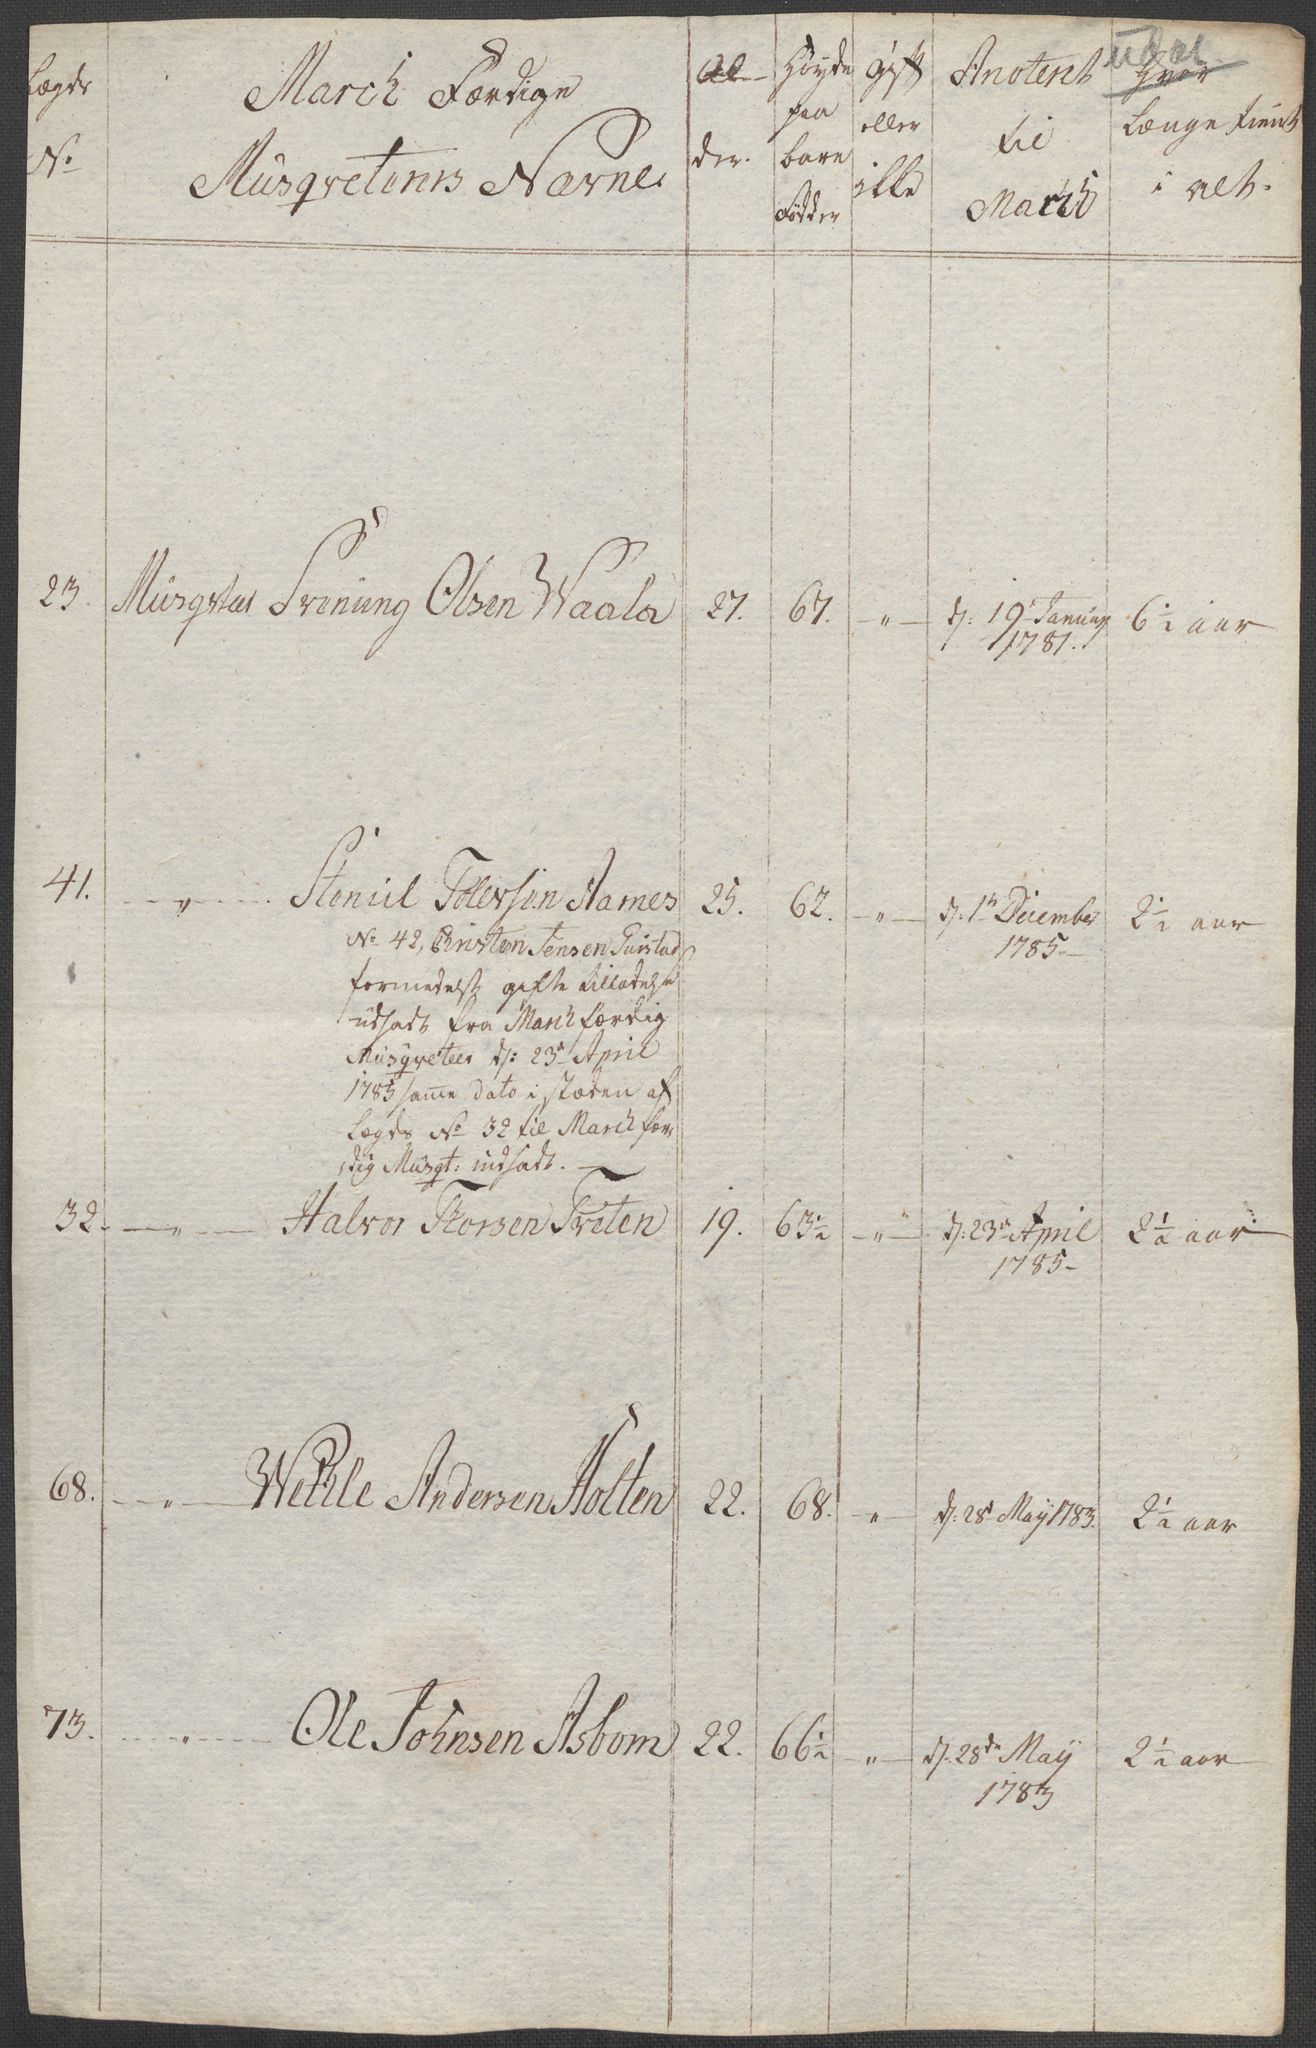 Lægds No
March Færdige Musqveteers Navne.
Al-der.
Høyde paa bare Fødder
Gift eller ikke
Anotert til March
Hvor Længe tient i alt.
23. Musqvteer Svenung Olsen Waala 27. 67. — " — d: 19 Januarj 1781. 6 1/2 aar
41. — " — Steniil Tolevsen Aames 25. 62. — " — d: 1te December 1785 — 2 1/2 aar
No 42, Christen Jensen
formedelst gifte tilladelse
udsadt fra March færdig
Musqveteer d: 23de April
1785 samme dato i stæden af
Lægds No 32 til March fær
dig Musqt: indsadt. —
32. — " — Halvor Thorsen Træten 19. 63 1/2 — " — d: 23de April 1785 — 2 1/2 aar
68. — " — Wetle Andersen Holten 22. 68. — " — d: 28de May 1783. 2 1/2 aar
73. — " — Ole Johnsen Asbom 22. 66 1/2 — " — d. 28de May 1783 2 1/2 aar